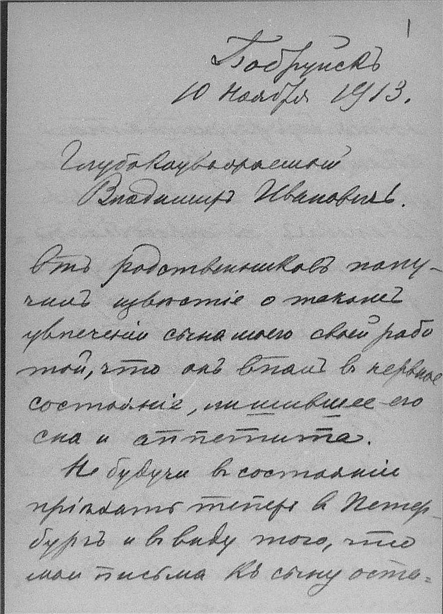 1
Бобруйскъ
10 Ноября 1913.
Глубокоуважаемый
Владимиръ Ивановичъ.
Отъ родственниковъ полу-
чилъ извѣстіе о такомъ
увлеченіи сына моего своей рабо
той, что онъ впалъ в нервное
состояніе, лишившее его
сна и аппетита.
Не будучи в состояніи
пріѣхать теперь в Петер-
бургъ и в виду того, что
мои письма къ сыну оста=